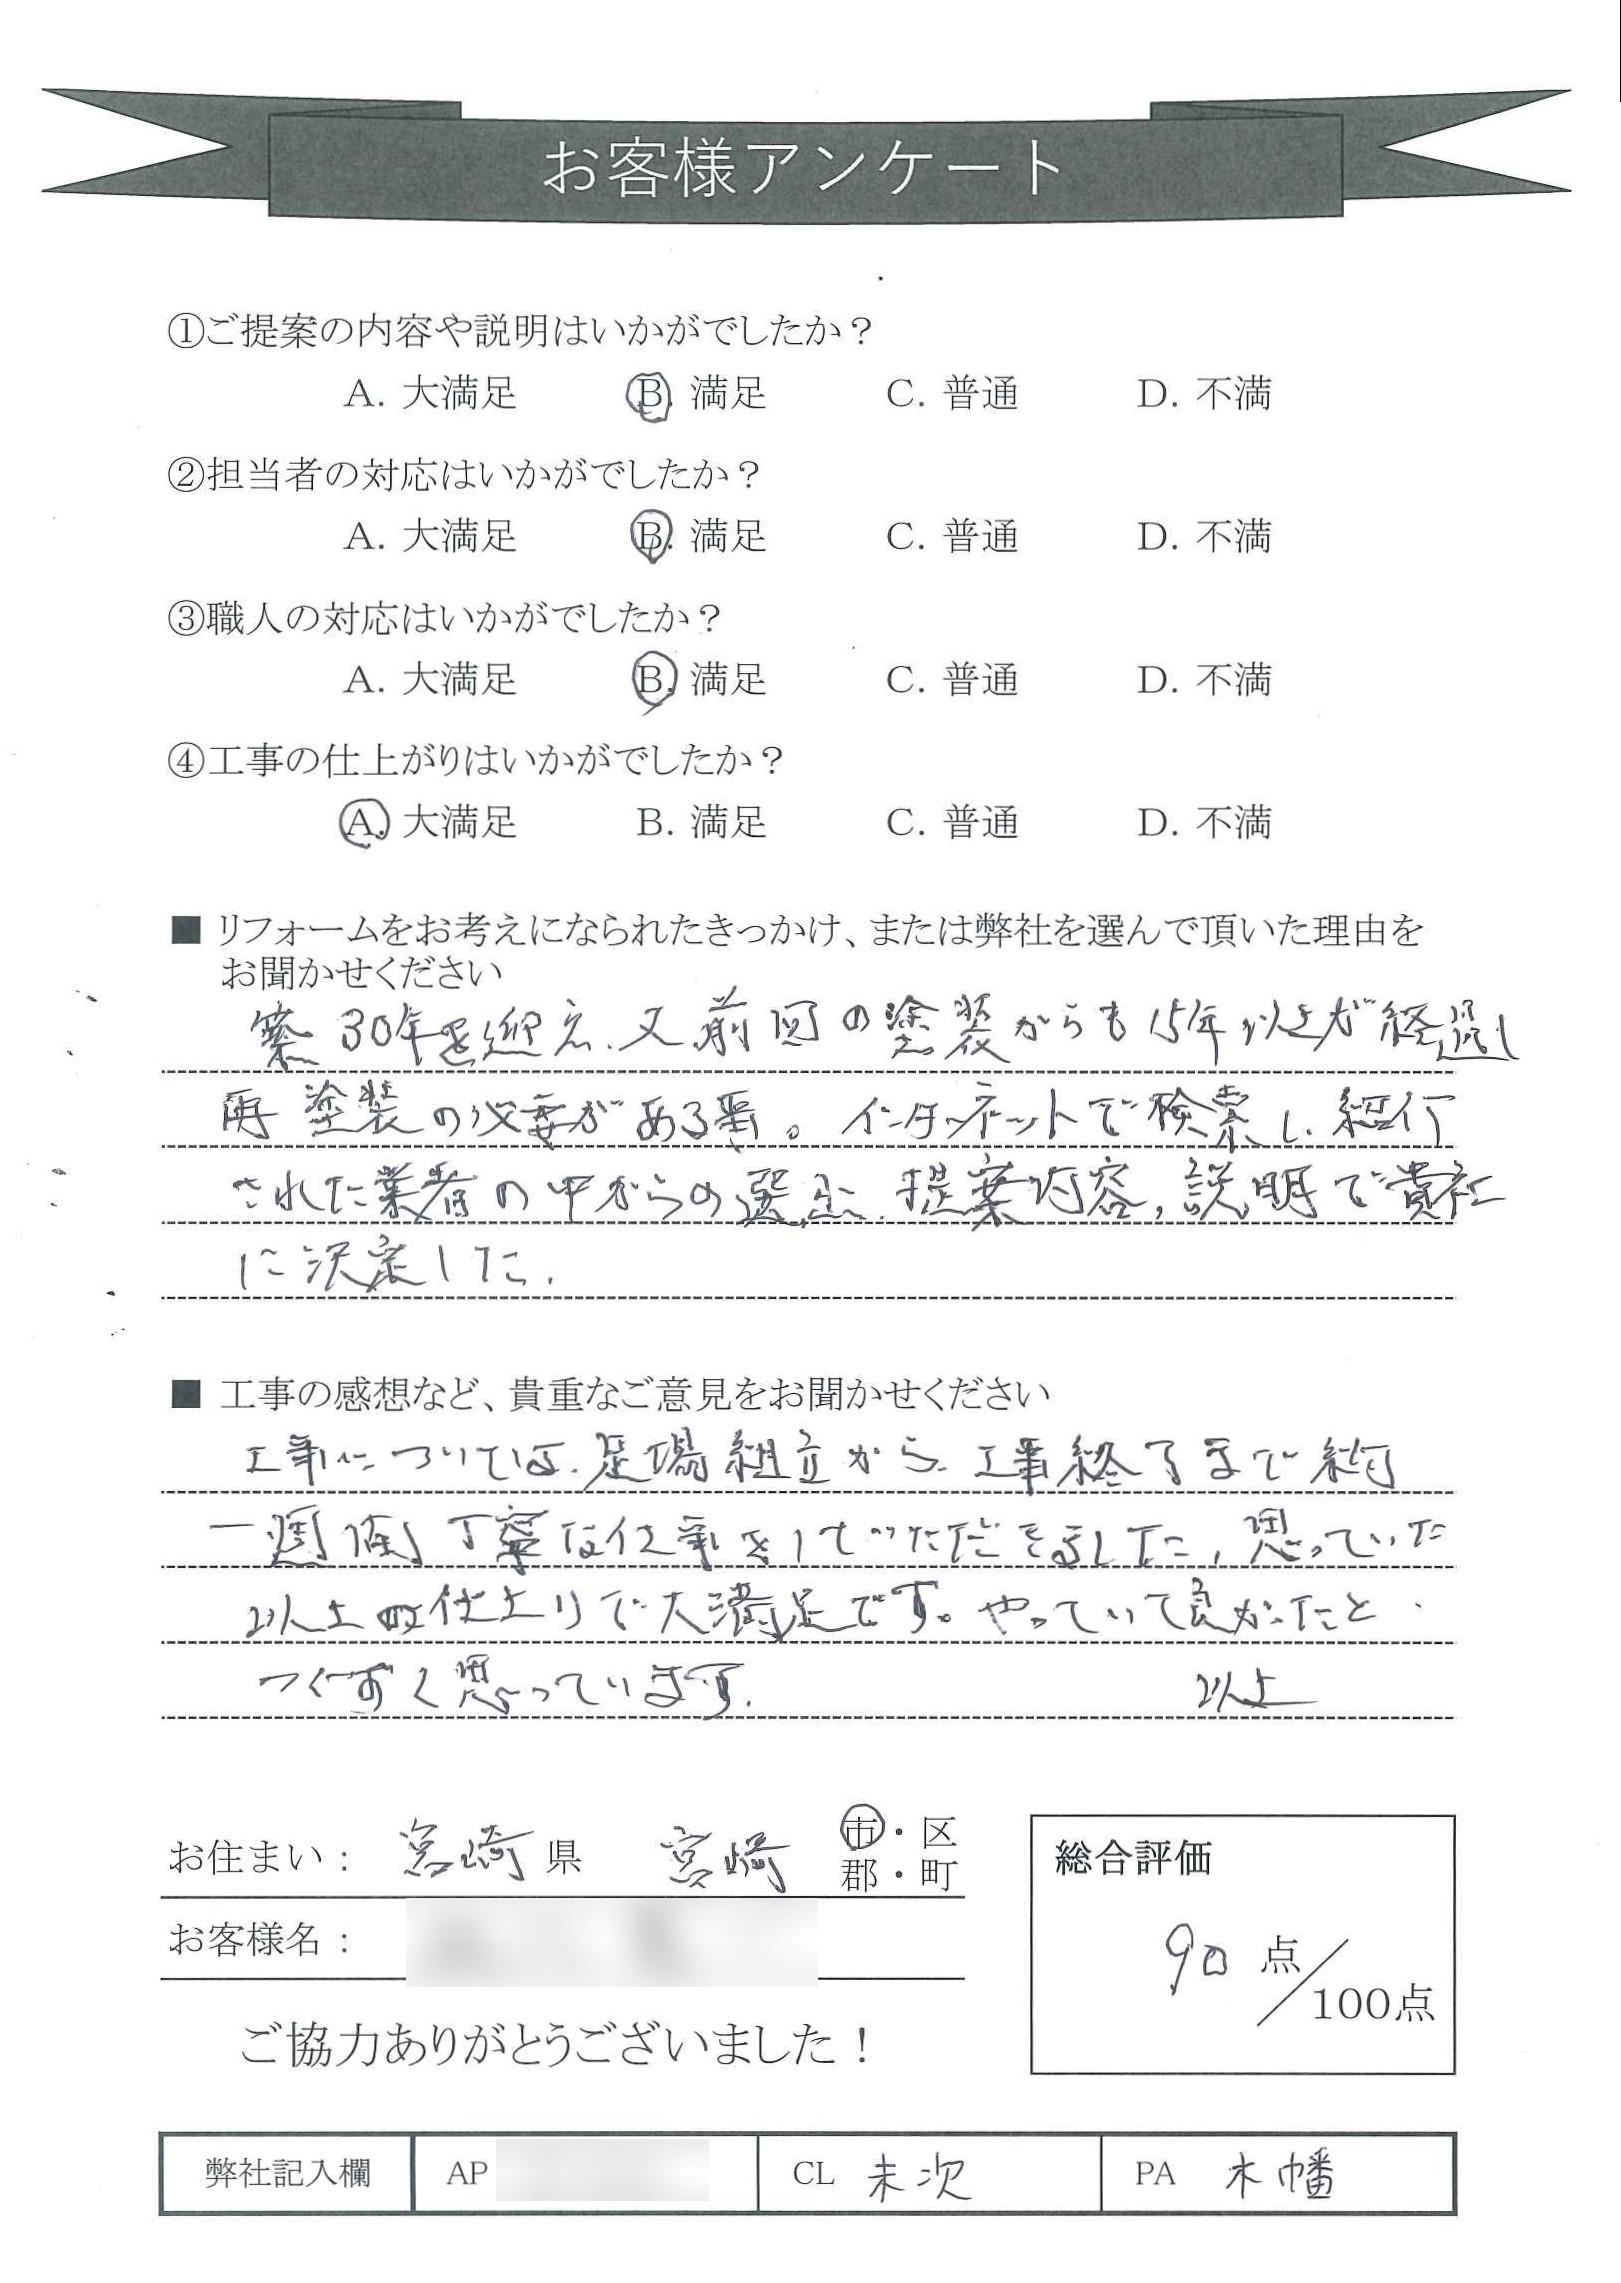 お客様アンケート
①ご提案の内容や説明はいかがでしたか？
A. 大満足 B. 満足 C. 普通 D. 不満
②担当者の対応はいかがでしたか？
A. 大満足 B. 満足 C. 普通 D. 不満
③職人の対応はいかがでしたか？
A. 大満足 B. 満足 C. 普通 D. 不満
④工事の仕上がりはいかがでしたか？
A. 大満足 B. 満足 C. 普通 D. 不満
■ リフォームをお考えになられたきっかけ、または弊社を選んで頂いた理由を
お聞かせください
築30年を迎え、又前回の塗装からも15年以上が経過し
再塗装の必要がある事。インターネットで検索し、紹介
された業者の中からの選出、提案内容、説明で貴社
に決定した。
■ 工事の感想など、貴重なご意見をお聞かせください
工事については、足場組立から、工事終了まで約
一週間丁寧な仕事をしていただきました、思っていた
以上の仕上りで大満足です。やっていて良かったと
つくずく思っています。 以上
お住まい： 宮崎 県 宮崎 市・区
郡・町
お客様名：
総合評価
90 点／100点
ご協力ありがとうございました！
弊社記入欄 AP CL 末次 PA 木幡